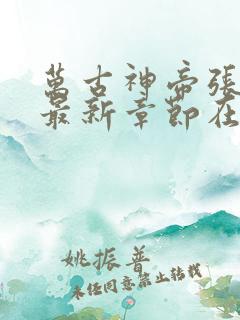 萬古神帝張
最新章節在
姚振普
未经同意禁止转载